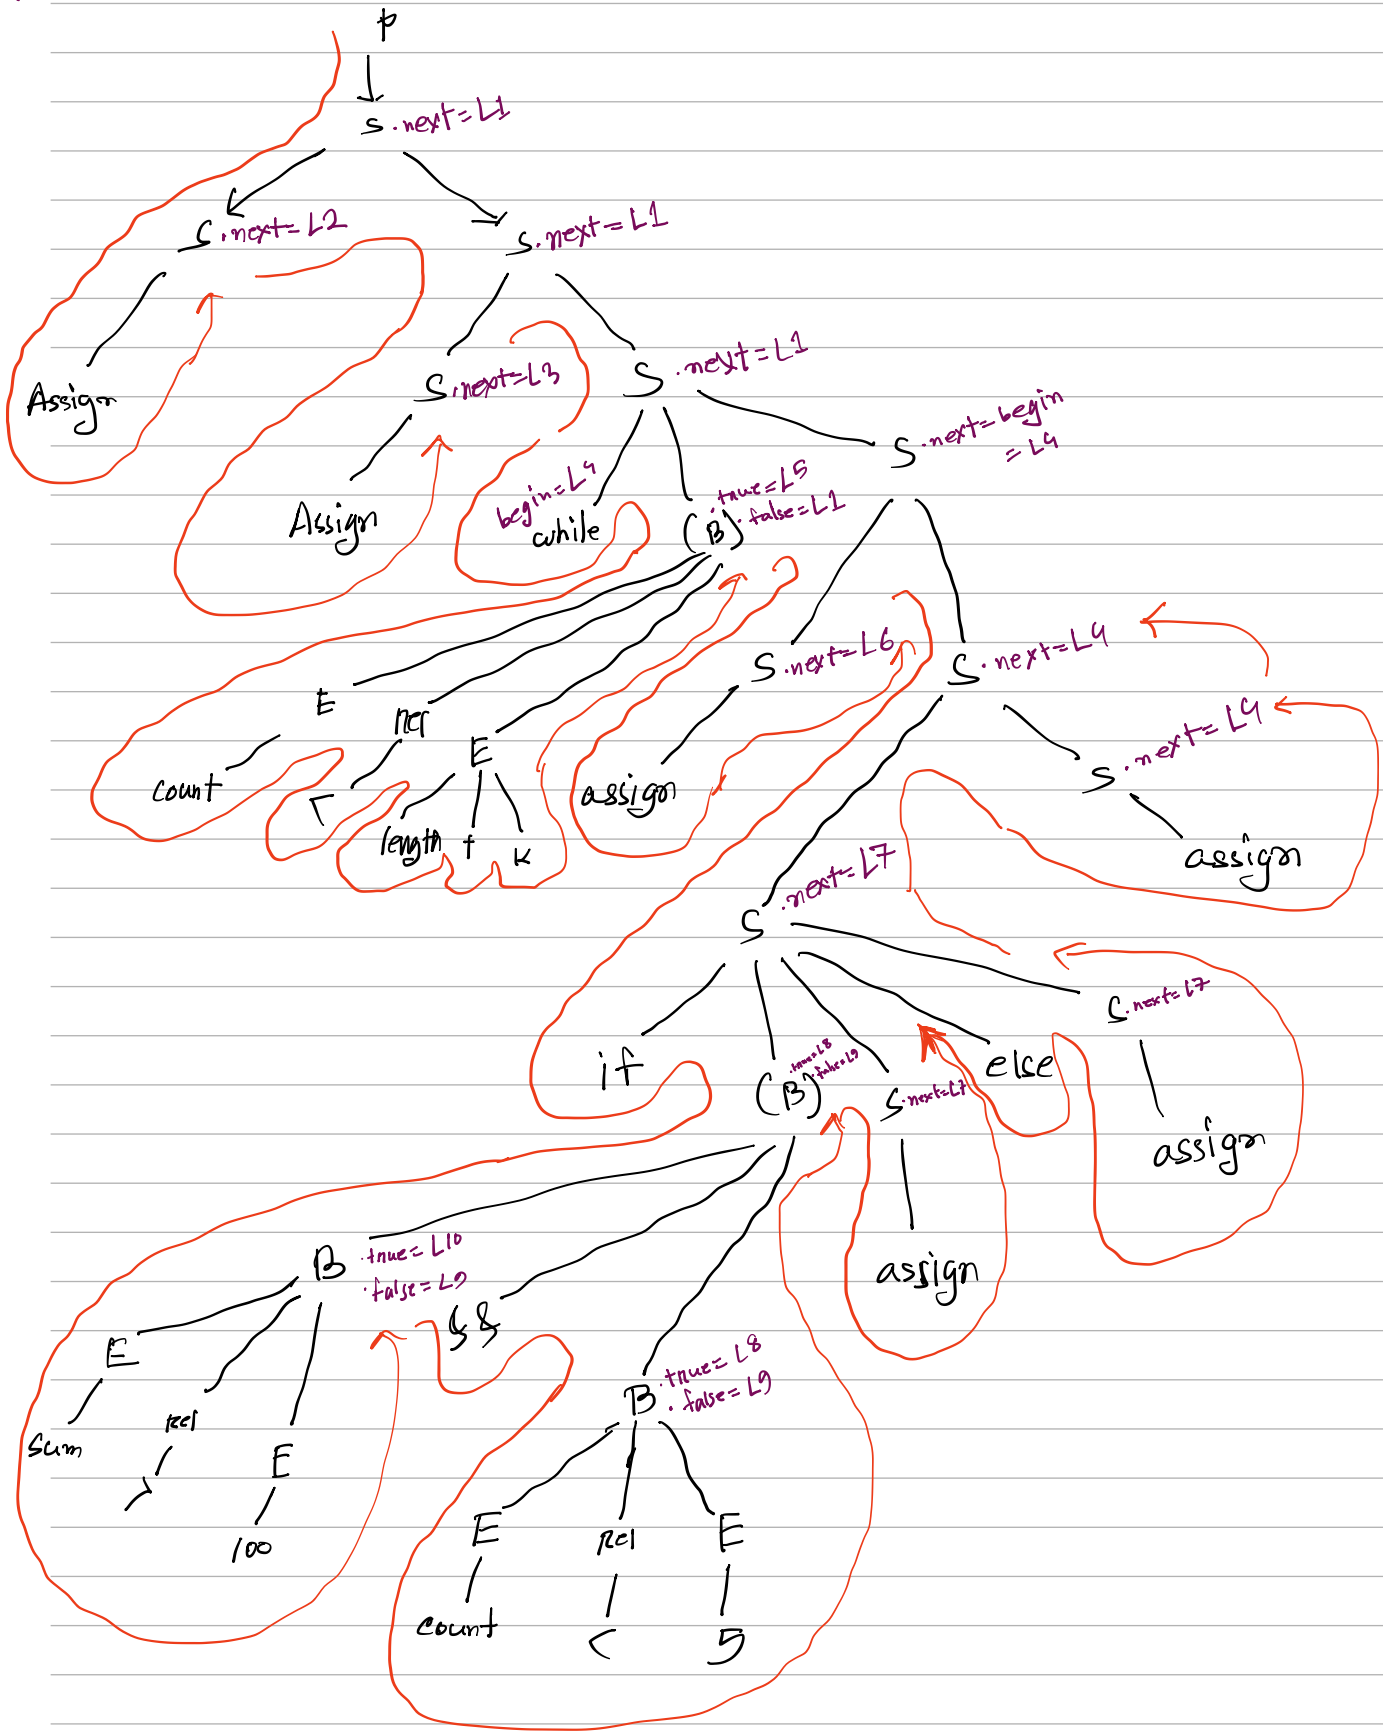 P
S.next=L1
S.next=L2
S.next=L1
Assign
S.next=L3
S.next=L1
Assign
begin=L4
while
(B)
.true=L5
.false=L1
S.next=begin
=L4
E
rel
E
count
<
length
+
K
S.next=L6
assign
S.next=L4
S.next=L4
assign
S.next=L7
if
(B)
.true=L8
.false=L9
S.next=L7
else
S.next=L7
assign
assign
B
.true=L10
.false=L9
&&
E
rel
E
sum
>
100
B
.true=L8
.false=L9
E
rel
E
count
<
5